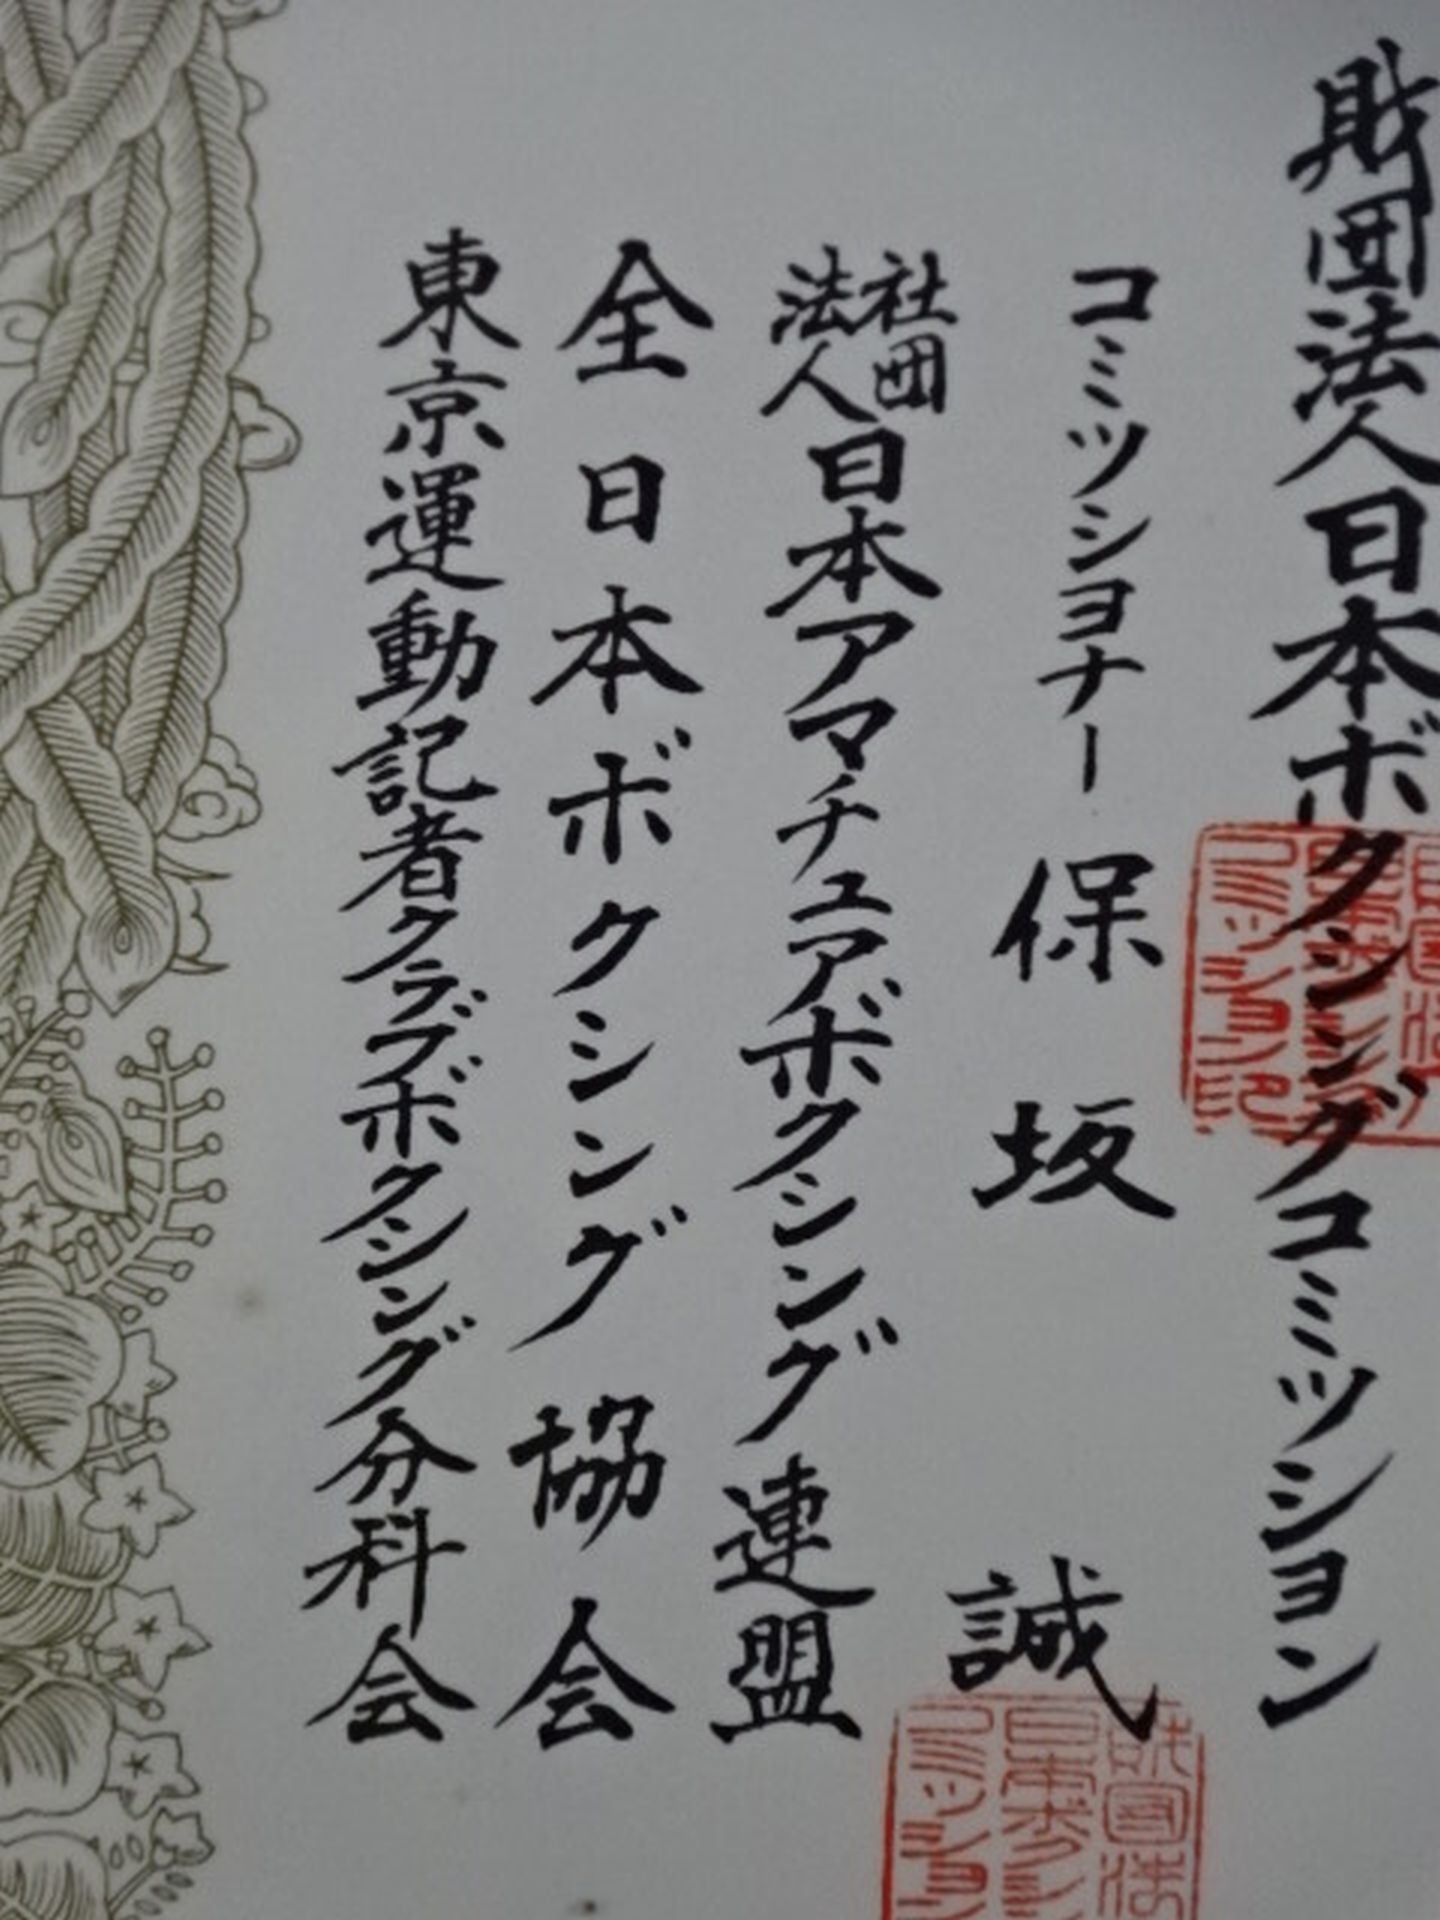 財団法人日本ボクシングコミツシヨン
コミツシヨナー 保坂 誠
社団法人日本アマチュアボクシング連盟
全日本ボクシング協会
東京運動記者クラブボクシング分科会